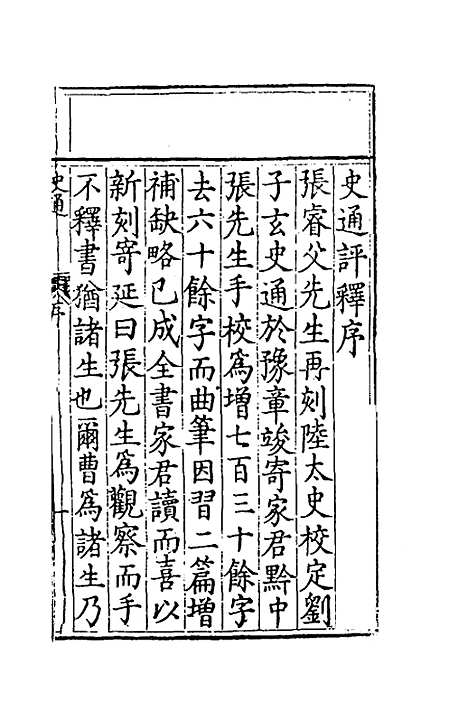 史通評釋序
張睿父先生再刻陸太史校定劉
子玄史通於豫章竣寄家君黔中
張先生手校爲增七百三十餘字
去六十餘字而曲筆因習二篇增
補缺略已成全書家君讀而喜以
新刻寄延曰張先生爲觀察而手
不釋書猶諸生也爾曹爲諸生乃
史通
序
一